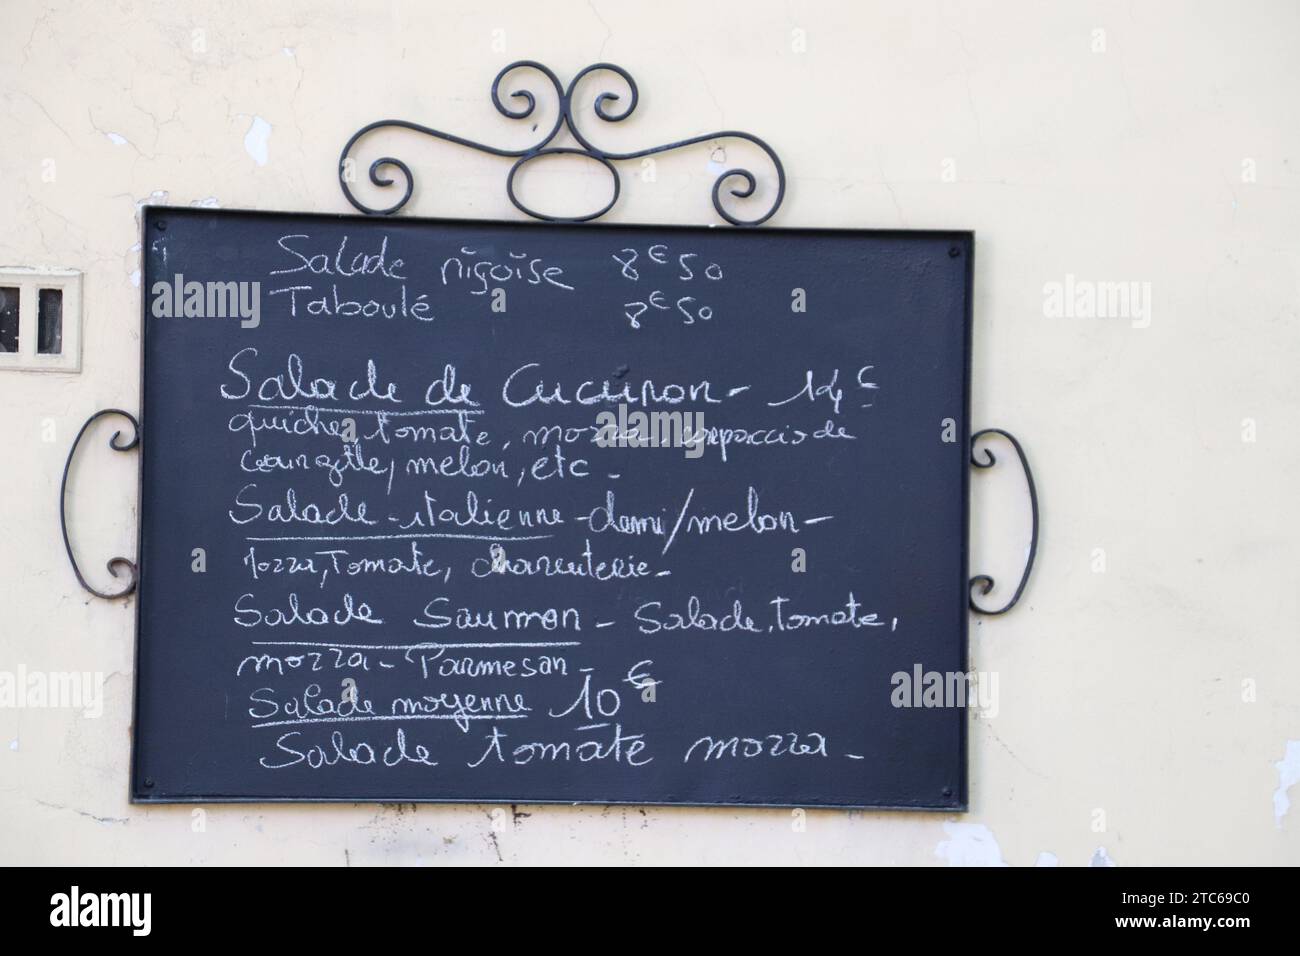 Salade niçoise 8€50
Taboulé 8€50
Salade de Cucuron - 14€
quiche, tomate, mozza, carpaccio de
courgette, melon, etc -
Salade italienne - demi/melon -
Mozza, Tomate, charcuterie -
Salade Saumon - Salade, tomate,
mozza - Parmesan -
Salade moyenne 10€
Salade tomate mozza -
alamy
Image ID: 2TC69C0
www.alamy.com